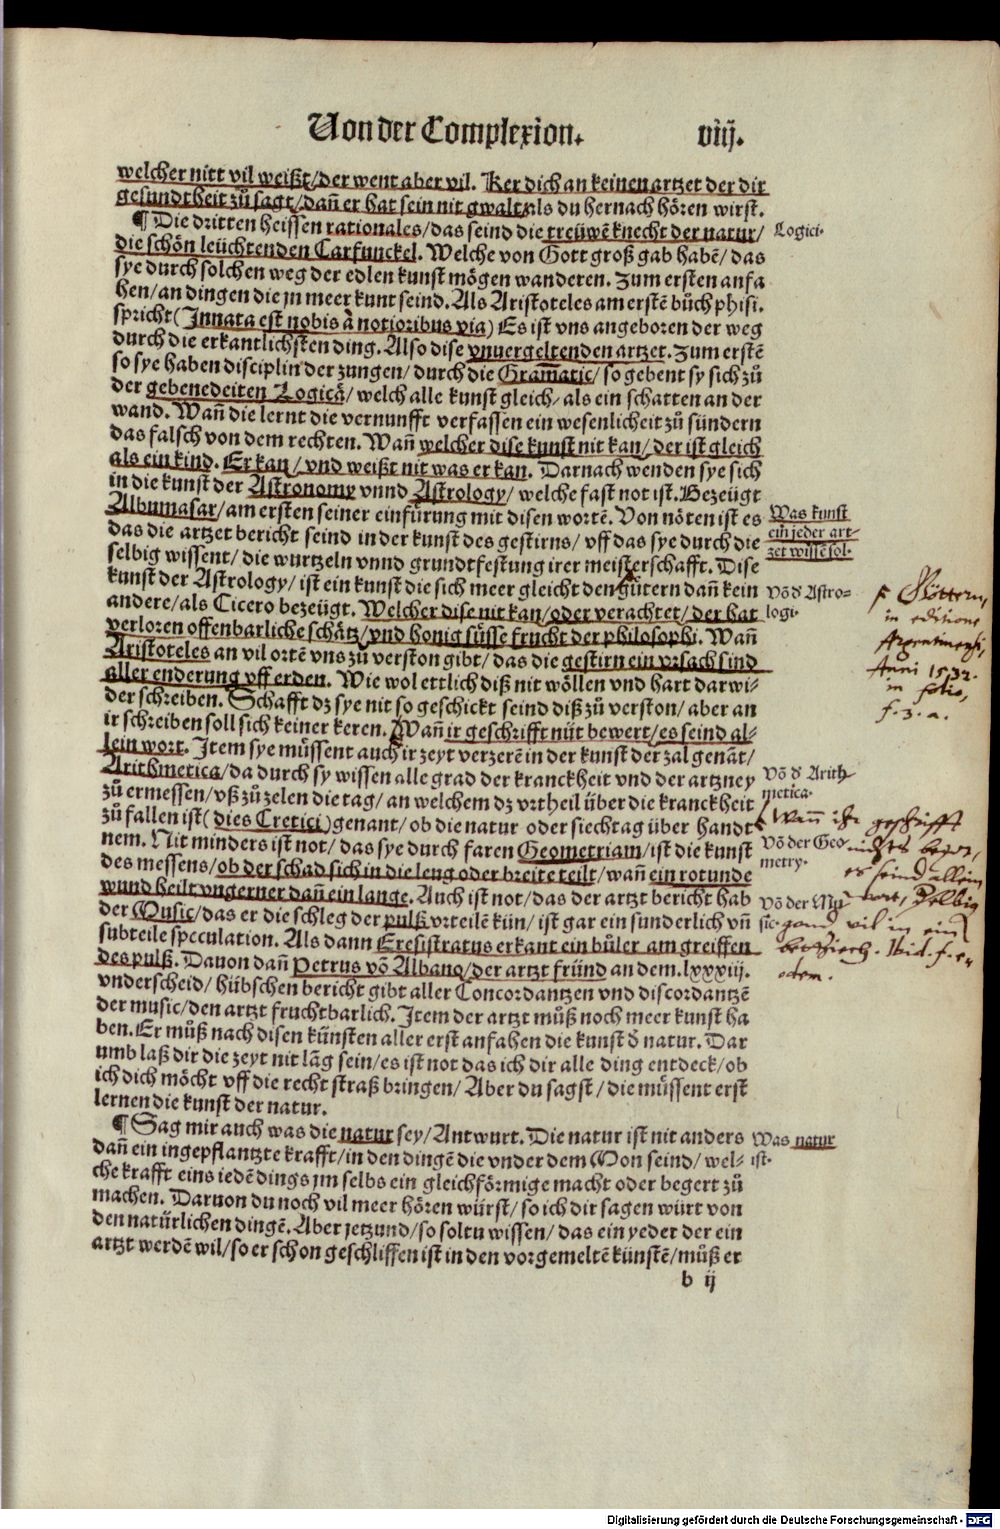 Von der Complexion.
viij.
welcher nitt vil weißt/der went aber vil. Ker dich an keinen artzet der dir
gesundtheit zů sagt/dañ er hat sein nit gwalt/als du hernach hören wirst.
¶ Die dritten heissen rationales/das seind die treüwē knecht der natur/
Logici.
die schön leüchtenden Carfunckel. Welche von Gott groß gab habē/das
sye durch solchen weg der edlen kunst mögen wanderen. Zum ersten anfa
hen/an dingen die jn meer kunt seind. Als Aristoteles am erstē bůch phisi.
spricht(Innata est nobis à notioribus via) Es ist vns angeboren der weg
durch die erkantlichsten ding. Also dise vnuergeltenden artzet. Zum erstē
so sye haben disciplin der zungen/durch die Gram̄atic/so gebent sy sich zů
der gebenedeiten Logicā/welch alle kunst gleich/als ein schatten an der
wand. Wañ die lernt die vernunfft verfassen ein wesenlicheit zů sündern
das falsch von dem rechten. Wañ welcher dise kunst nit kan/der ist gleich
als ein kind. Er kan/vnd weißt nit was er kan. Darnach wenden sye sich
in die kunst der Astronomy vnnd Astrology/welche fast not ist. Bezeügt
Albumasar/am ersten seiner einfürung mit disen wortē. Von nöten ist es
Was kunst
ein jeder art-
zet wissē sol.
das die artzet bericht seind in der kunst des gestirns/vff das sye durch die
selbig wissent/die wurtzeln vnnd grundtfestung irer meisterschafft. Dise
kunst der Astrology/ist ein kunst die sich meer gleicht den gütern dañ kein
Võ d Astro=
logi.
F Göttern,
in editione
Argentinensi,
Anni 1532.
in folio,
f. 3. a.
andere/als Cicero bezeügt. Welcher dise nit kan/oder verachtet/der hat
verloren offenbarliche schätz/vnd honig süsse frucht der philosophi. Wañ
Aristoteles an vil ortē vns zů verston gibt/das die gestirn ein vrsach sind
aller enderung vff erden. Wie wol ettlich diß nit wöllen vnd hart darwi-
der schreiben. Schafft dz sye nit so geschickt seind diß zů verston/aber an
ir schreiben soll sich keiner keren. Wañ ir geschrifft nüt bewert/es seind al-
lein wort. Item sye müssent auch ir zeyt verzerē in der kunst der zal genāt/
Arithmetica/da durch sy wissen alle grad der kranckheit vnd der artzney
Võ d Arith
metica.
zů ermessen/vß zů zelen die tag/an welchem dz vrtheil über die kranckheit
zů fallen ist(dies Cretici)genant/ob die natur oder siechtag über handt
nem. Nit minders ist not/das sye durch faren Geometriam/ist die kunst
Võ der Geo
metry.
des messens/ob der schad sich in die leng oder breite teilt/wañ ein rotunde
wund heilt vngerner dañ ein lange. Auch ist not/das der artzt bericht hab
der Music/das er die schleg der pulß vrteilē kün/ist gar ein sunderlich vñ
Võ der Mu
sic.
Wann ihr geschrifft
nichts
es seind allein
wort,
gand vil in ein
Ibid. f. e-
odem.
subteile speculation. Als dann Eresistratus erkant ein bůler am greiffen
des pulß. Dauon dañ Petrus võ Albano/der artzt fründ an dem.lxxxiij.
vnderscheid/hübschen bericht gibt aller Concordantzen vnd discordantzē
der music/den artzt fruchtbarlich. Item der artzt můß noch meer kunst ha
ben. Er můß nach disen künsten aller erst anfahen die kunst ð natur. Dar
umb laß dir die zeyt nit lāg sein/es ist not das ich dir alle ding entdeck/ob
ich dich möcht vff die recht straß bringen/Aber du sagst/die müssent erst
lernen die kunst der natur.
¶ Sag mir auch was die natur sey/Antwurt. Die natur ist nit anders
Was natur
ist.
dañ ein ingepflantzte krafft/in den dingē die vnder dem Mon seind/wel-
che krafft eins iedē dings jm selbs ein gleichförmige macht oder begert zů
machen. Daruon du noch vil meer hören würst/so ich dir sagen würt von
den natürlichen dingē. Aber jetzund/so soltu wissen/das ein yeder der ein
artzt werdē wil/so er schon geschliffen ist in den vorgemeltē künstē/můß er
b ij
Digitalisierung gefördert durch die Deutsche Forschungsgemeinschaft - DFG